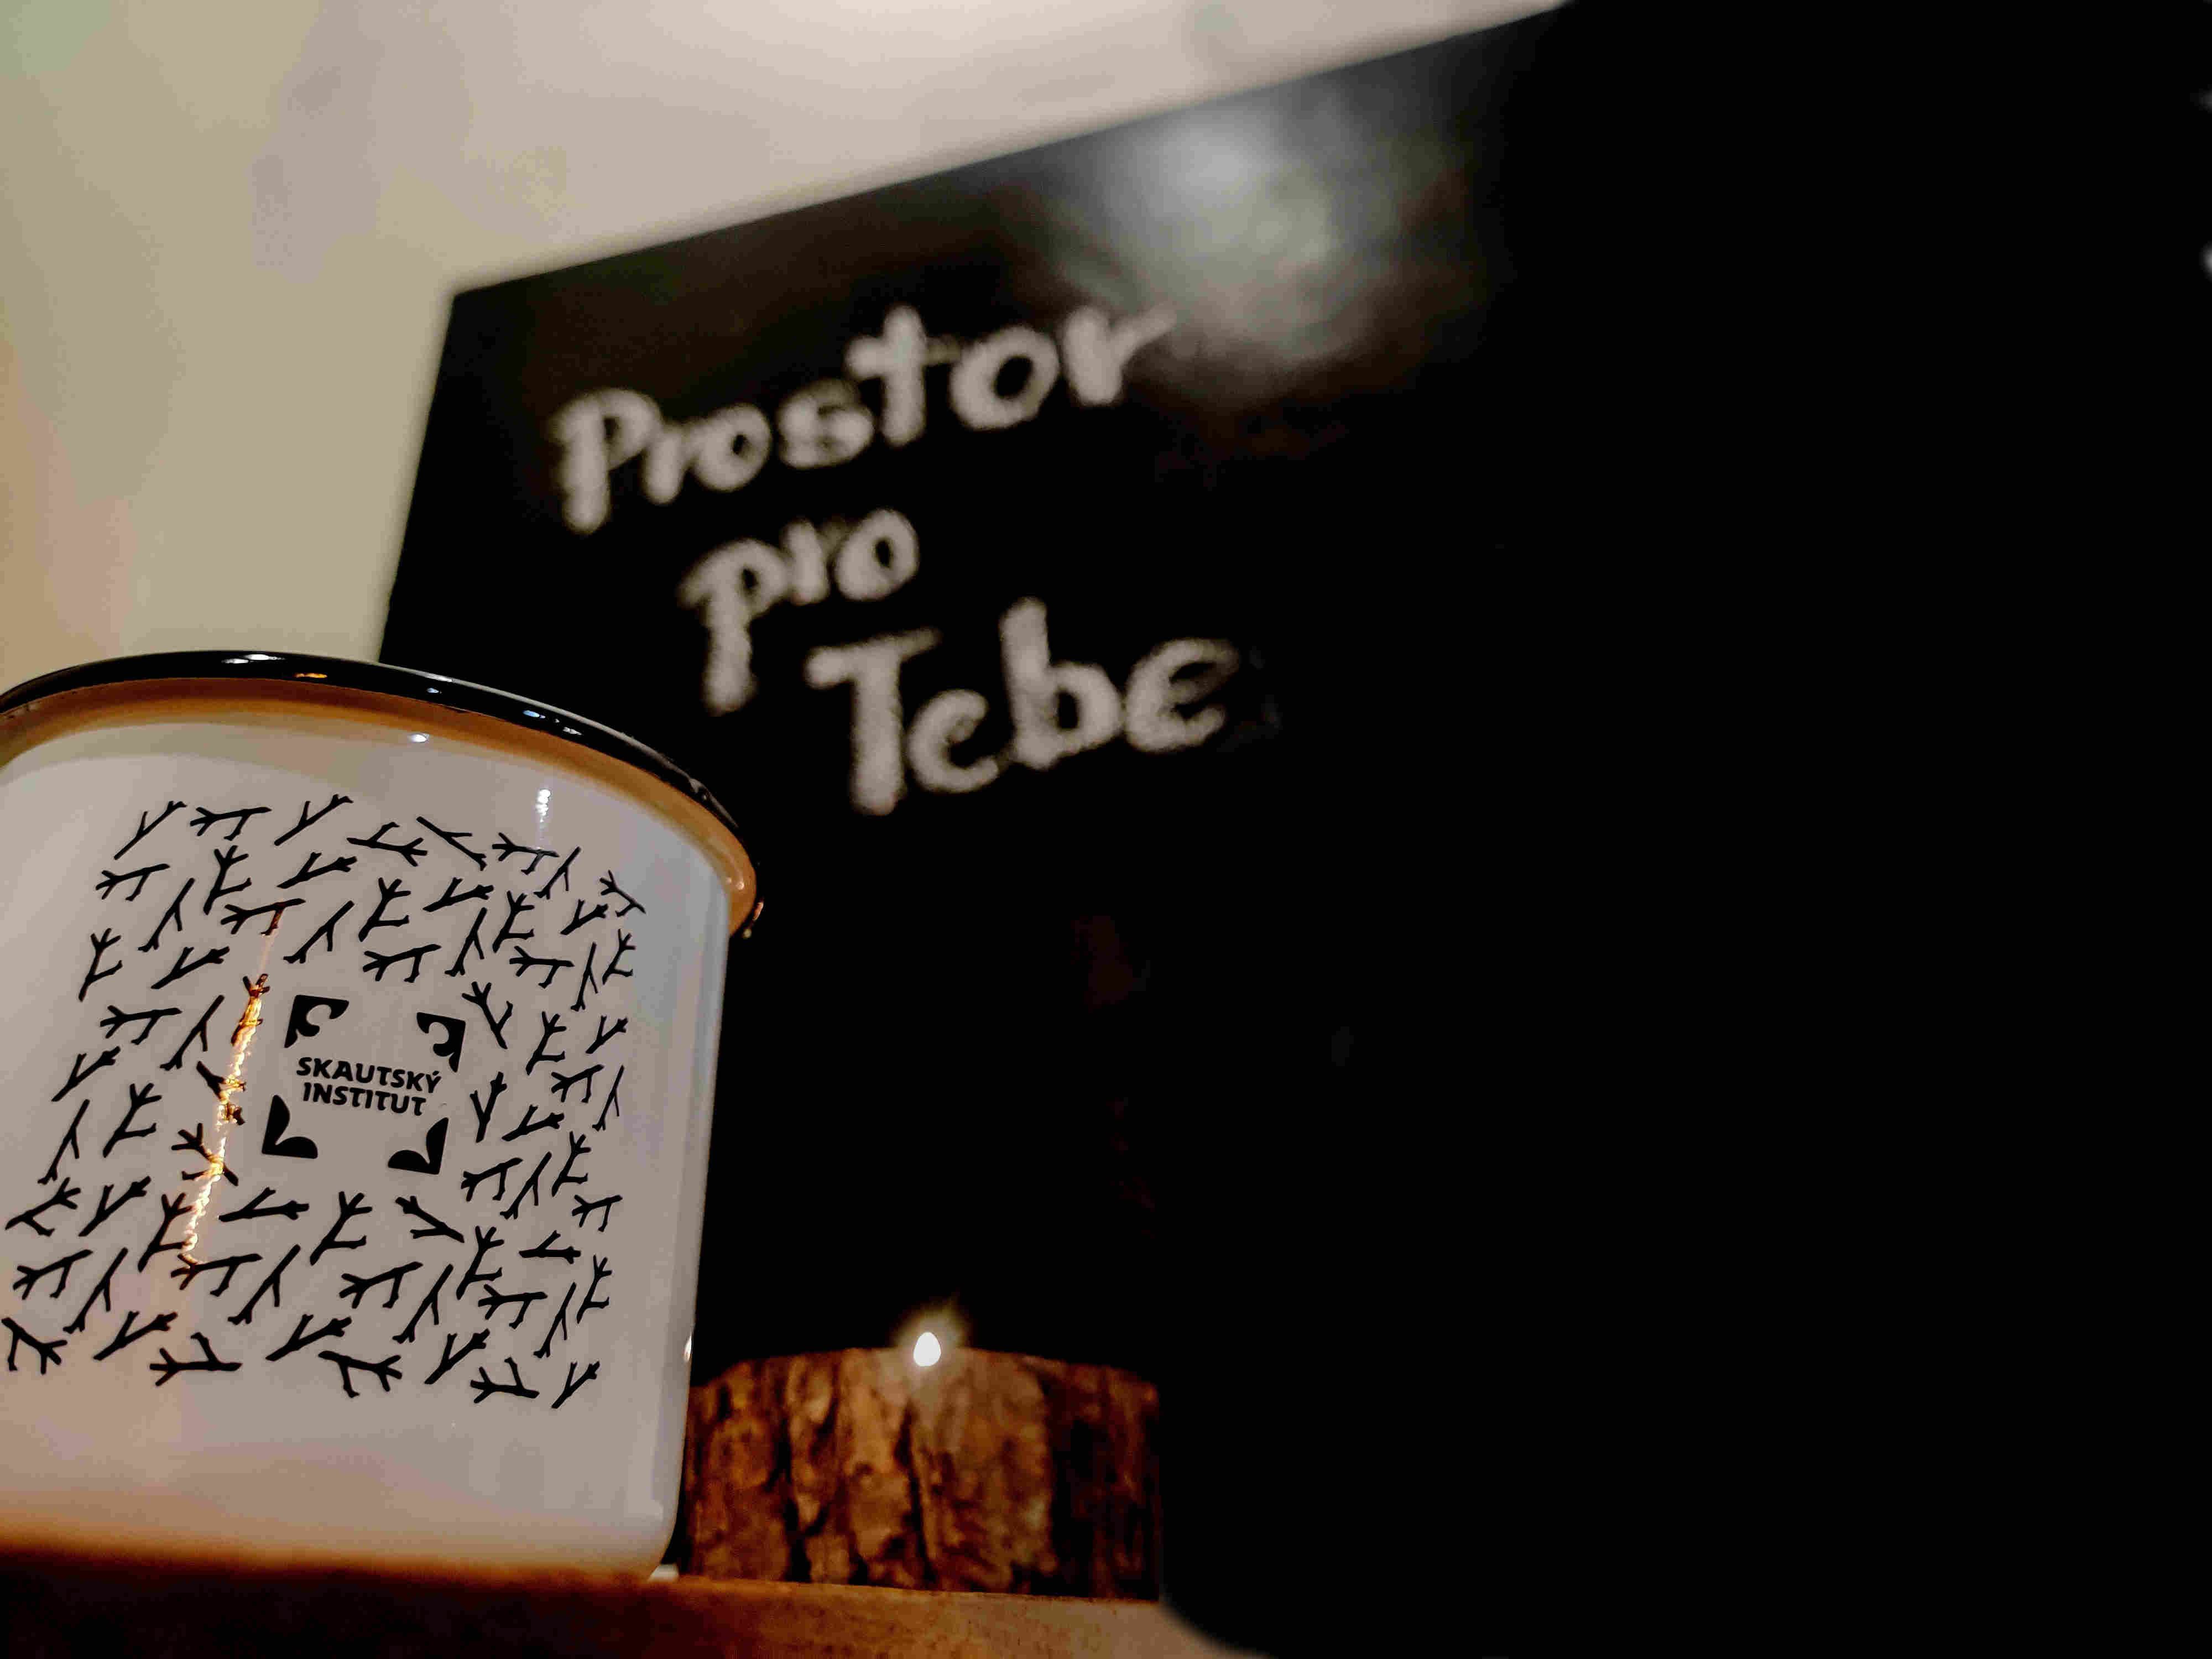 Prostor
pro
Tebe
SKAUTSKÝ
INSTITUT